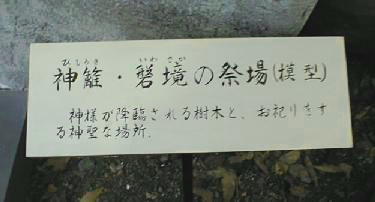 ひもろぎ いわさか
神籬・磐境の祭場(模型)
神様が降臨される樹木と、お祀りをす
る神聖な場所.